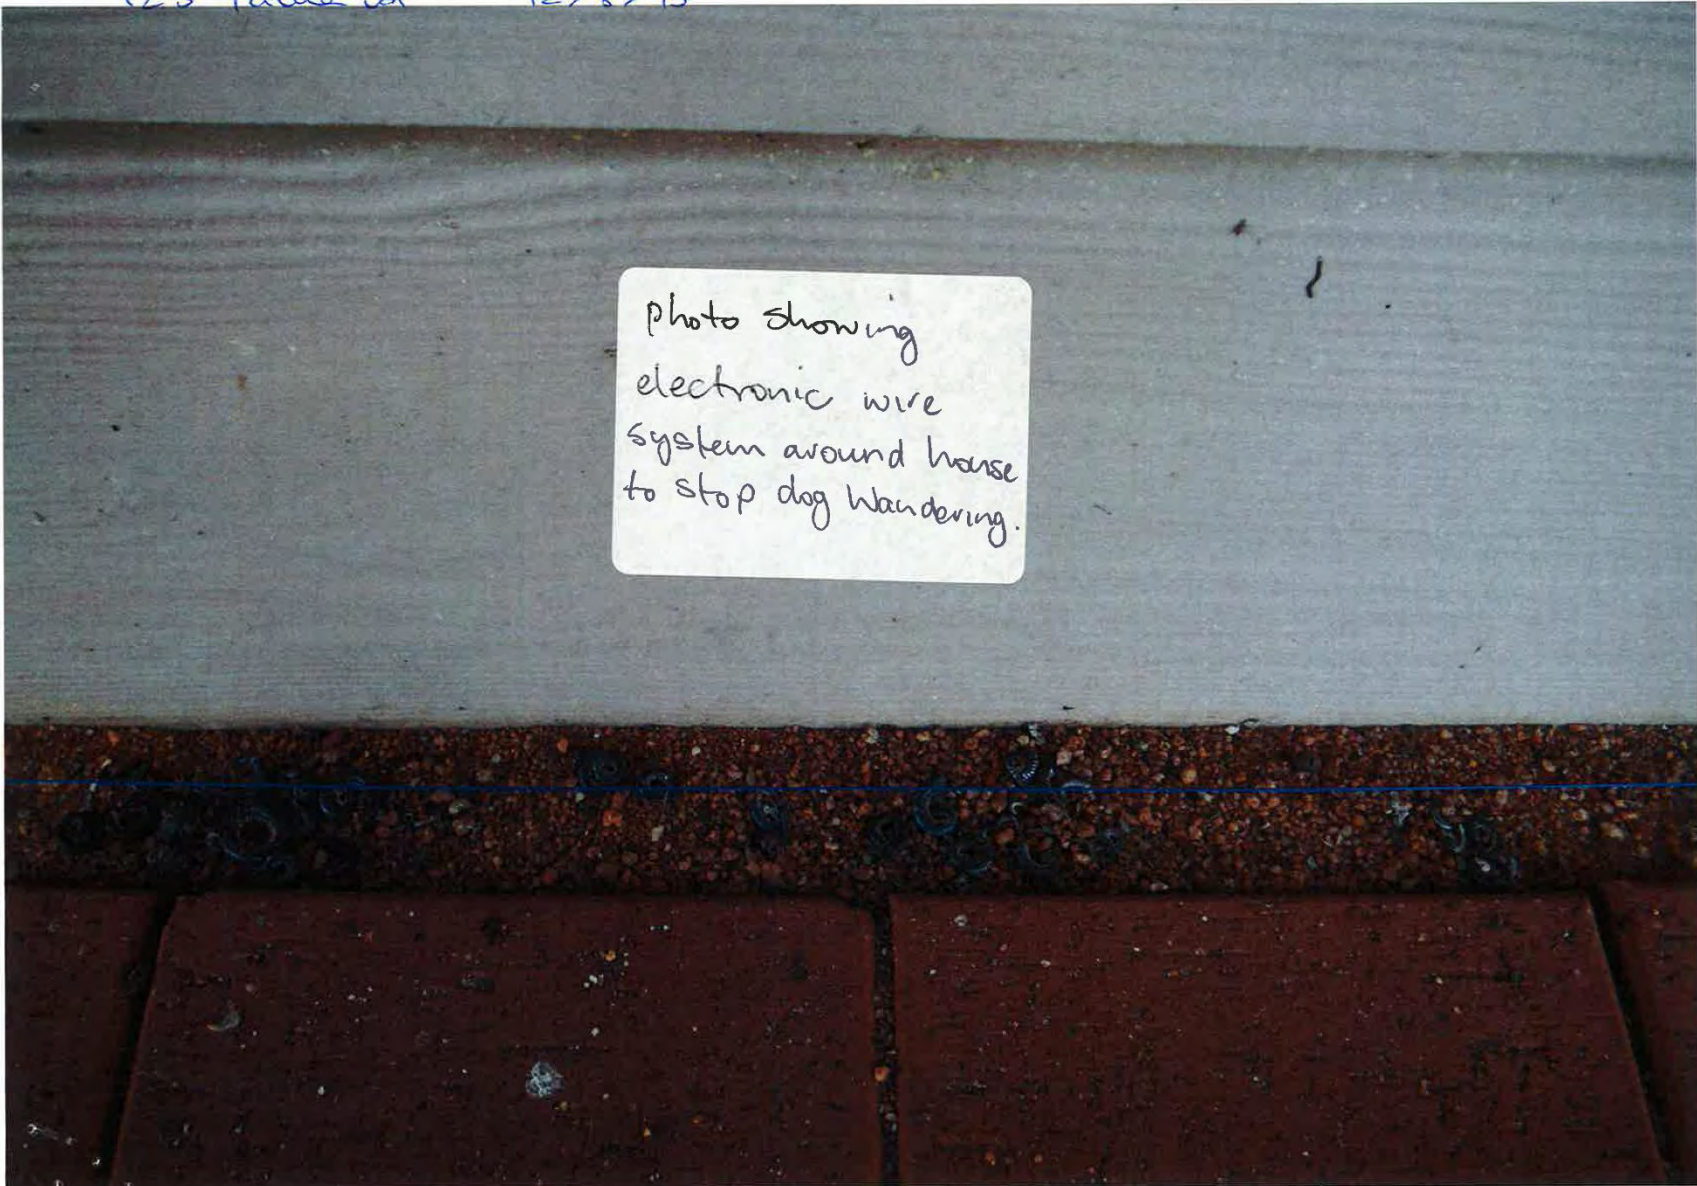 photo showing
electronic wire
system around house
to stop dog Wandering.